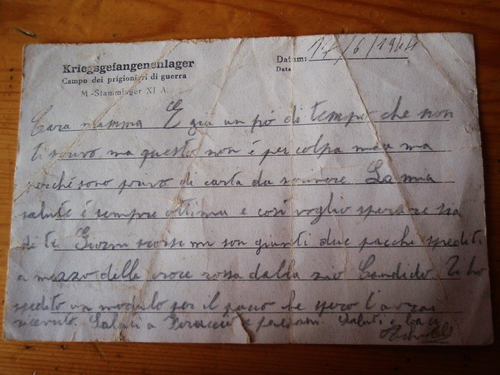 Kriegsgefangenenlager
Datum: 17/6/1944
Campo dei prigionieri di guerra
Data
M.-Stammlager XI A.
Cara mamma E gia un pò di tempo che non
ti scrivo ma questo non è per colpa mia ma
perché sono privo di carta da scrivere La mia
salute è sempre ottima e cosi voglio sperare sia
di te Giorni scorsi mi son giunti due pacchi spediti
a mezzo delle croce rossa dalla zio Candido. Ti ho
spedito un modulo per il pacco che spero l'avrai
ricevuto. Saluti a e Saluti e baci